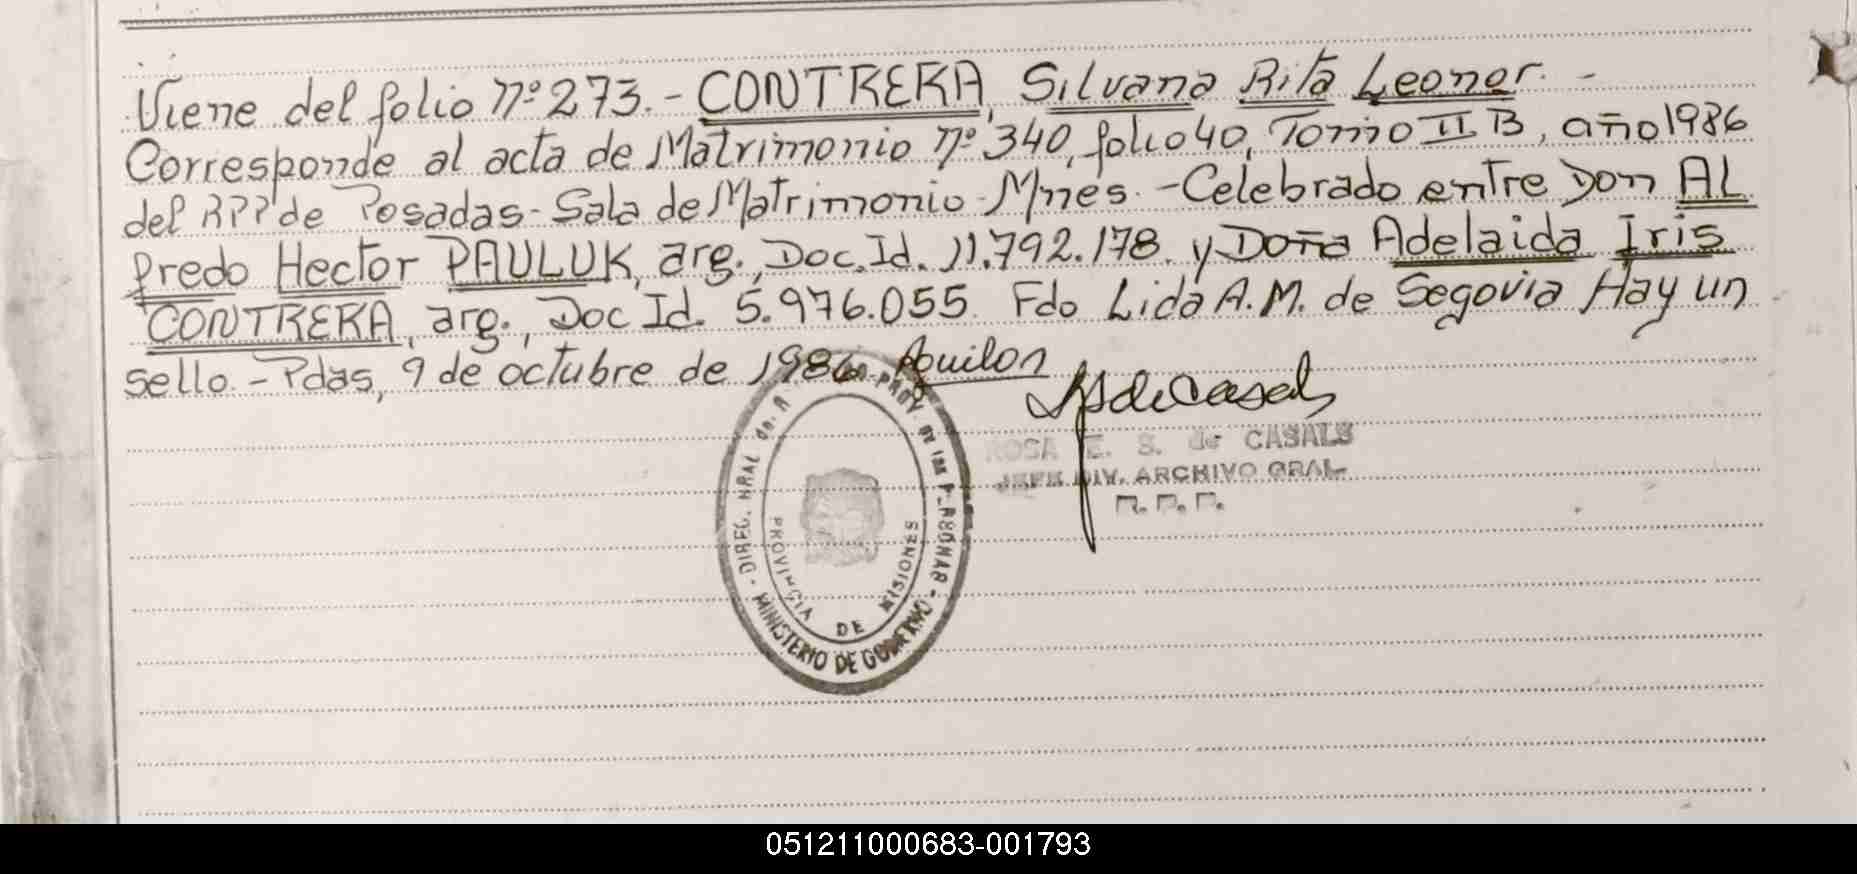 Viene del folio nº 273.- CONTRERA, Silvana Rita Leonor.-
Corresponde al acta de Matrimonio nº 340, folio 40, Tomo II B, año 1986
del RPP de Posadas- Sala de Matrimonio- Mnes.- Celebrado entre Don AL
fredo Hector PAULUK, arg., Doc. Id. 11.792.178. y Doña Adelaida Iris
CONTRERA, arg., Doc Id. 5.976.055. Fdo Lida A.M. de Segovia Hay un
sello.- Pdas, 9 de octubre de 1986. Aquilon
ROSA E. S. de CASALS
JEFE DIV. ARCHIVO GRAL.
R. P. P.
PROVINCIA DE MISIONES
MINISTERIO DE GOBIERNO
051211000683-001793